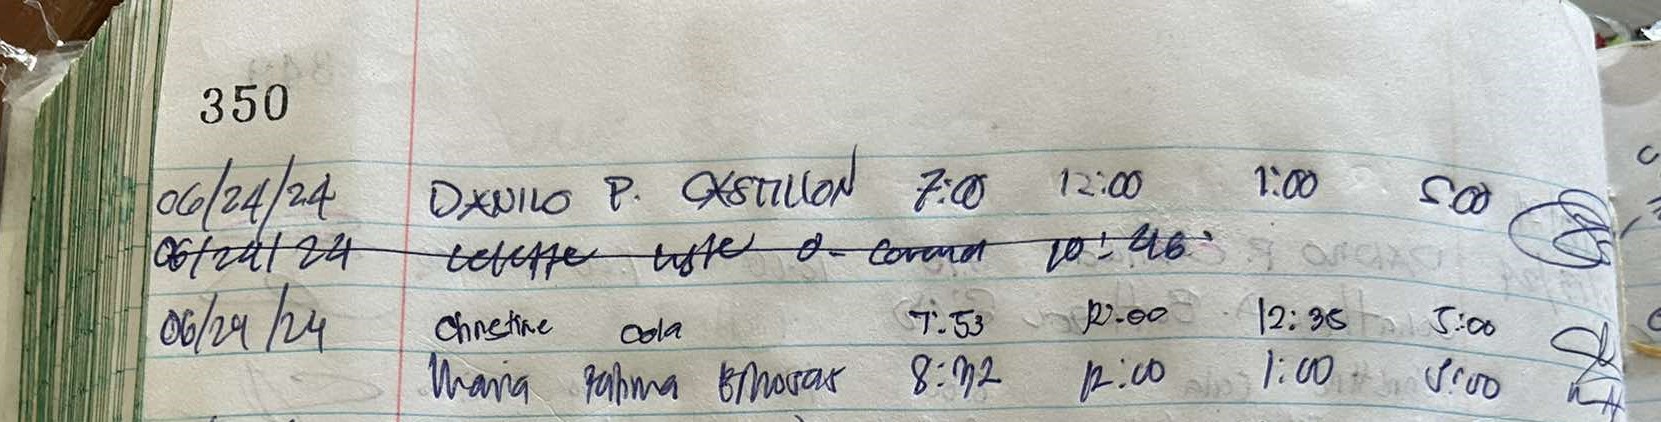 350
06/24/24 DANILO P. CASTILLON 7:00 12:00 1:00 5:00
06/24/24 10:46
06/24/24 Christine Oola 7:53 12:00 12:35 5:00
Maria Fatima 8:32 12:00 1:00 5:00